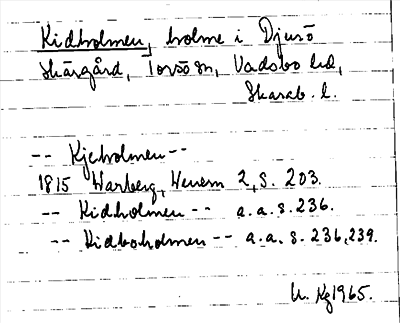 Kidholmen, holme i Djurö
skärgård, Torsö sn, Vadsbo hd,
Skarab. l.
-- Kjeholmen --
1815 Warberg, Wenern 2, S. 203.
-- Kidholmen -- a.a.s. 236.
-- Kidboholmen -- a.a. s. 236, 239.
Kg 1965.